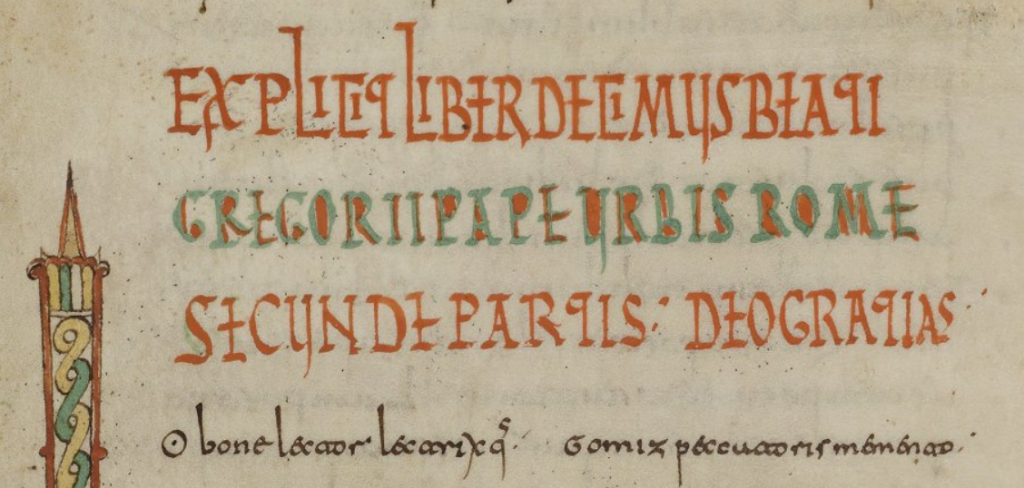 EXPLICIT LIBER DECIMUS BEATI
GREGORII PAPE URBIS ROME
SECUNDE PARTIS: DEO GRATIAS
O bone lector lectrixqs. Gomiz peccatoris memento.